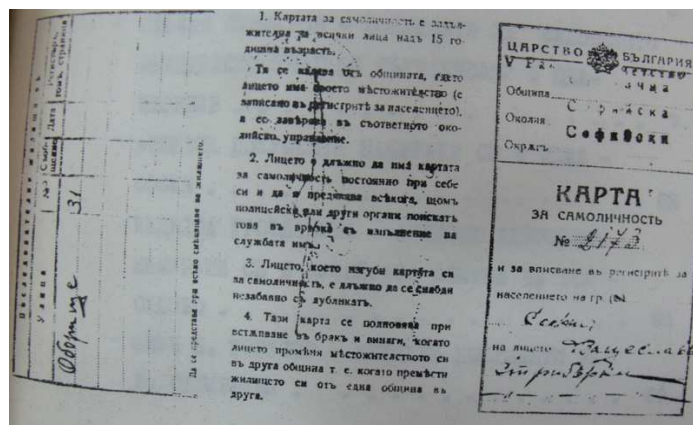 Последователни жилища въ
Улица
№
Дата
Регистъръ, томъ, страница
Оборище
31
Да се представя при всяко смѣняване на жилището.
1. Картата за самоличность е задъл-
жителна за всички лица надъ 15 го-
дишна възрасть.
Тя се издава отъ общината, гдето
лицето има своето мѣстожителство (е
записано въ регистритѣ за населението),
а се заверява въ съответното око-
лийско управление.
2. Лицето е длъжно да има картата
за самоличность постоянно при себе
си и да я предявява всѣкога, щомъ
полицейски или други органи поискатъ
това въ връзка съ изпълнение на
службата имъ.
3. Лицето, което изгуби картата си
за самоличность, е длъжно да се снабди
незабавно съ дубликатъ.
4. Тази карта се подновява при
встѫпване въ бракъ и винаги, когато
лицето промѣня мѣстожителството си
въ друга община т. е. когато премѣсти
жилището си отъ една община въ
друга.
ЦАРСТВО БЪЛГАРИЯ
Община
Околия
Софийски
Окрѫгъ
КАРТА
ЗА САМОЛИЧНОСТЬ
№ 2173
и за вписване въ регистритѣ за
населението на гр. (с.)
София
на лицето